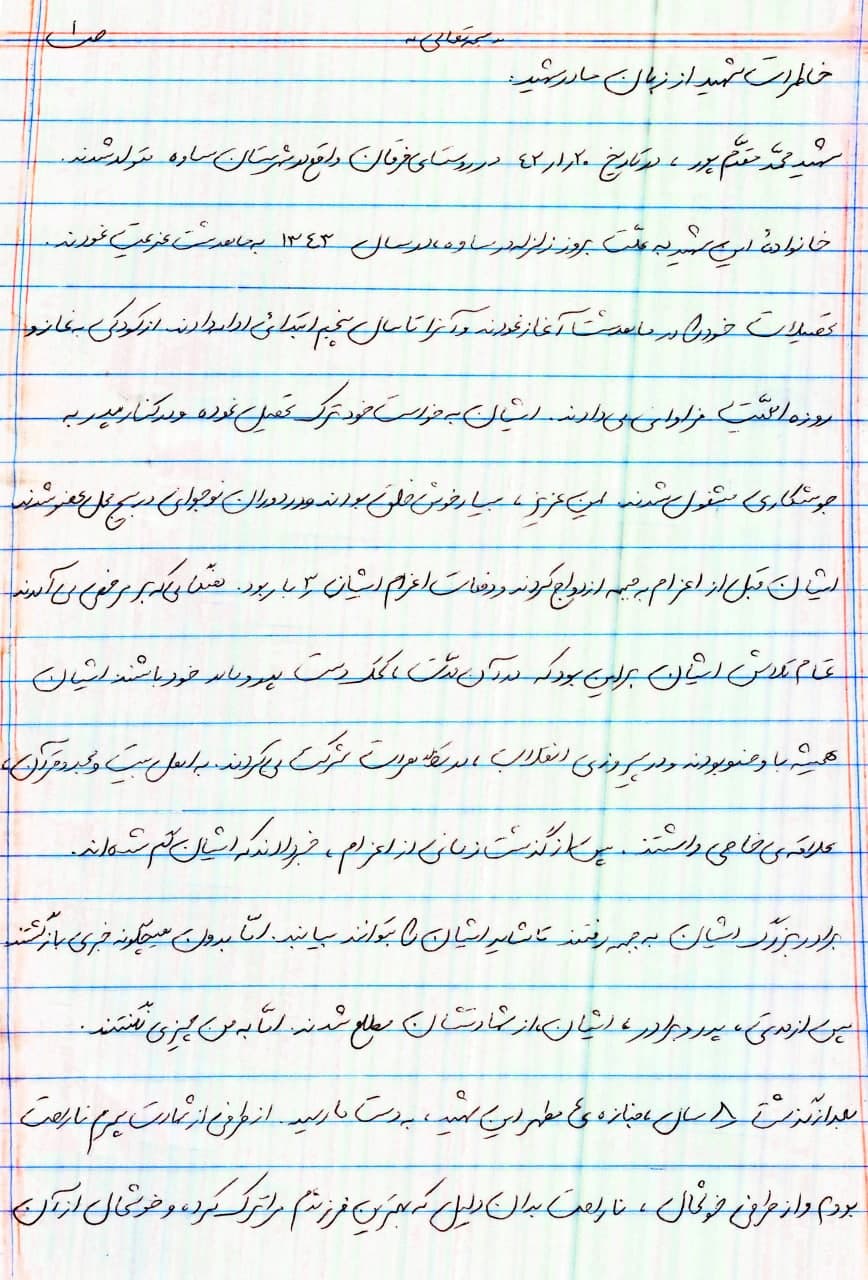 ص۱
«بسمه تعالی»
خاطرات شهید از زبان مادر شهید:
شهید محمّد مقدّم پور، در تاریخ ۴۲/۱/۲۰ در روستای فرقان واقع در شهرستان ساوه متولد شدند.
خانوادهٔ این شهید به علّت بروز زلزله در ساوه، در سال ۱۳۴۳ به ماهدشت عزیمت نمودند.
تحصیلات خود را در ماهدشت آغاز نمودند و آنرا تا سال پنجم ابتدائی ادامه دادند. از کودکی به نماز و
روزه اهمّیّت فراوانی می‌دادند. ایشان به خواست خود ترک تحصیل نموده و در کنار پدر به
جوشکاری مشغول شدند. این عزیز، بسیار خوش خلق بودند و در دوران نوجوانی در بسیج محل عضو شدند
ایشان قبل از اعزام به جبهه ازدواج کردند و دفعات اعزام ایشان ۳ بار بود. هنگامی‌که بر مرخصی می‌آمدند
تمام تلاش ایشان بر این بود که در آن مدّت، کمک دست پدر و مادر خود باشند. ایشان
همیشه با وضو بودند و در پیروزی انقلاب، در تظاهرات شرکت می‌کردند. به اهل بیت و مجد و قرآن،
علاقه‌ی خاصی داشتند. پس از گذشت زمانی از اعزام، خبر دادند که ایشان گم شده‌اند.
برادر بزرگ ایشان به جبهه رفتند تا شاید ایشان را بتوانند بیابند. امّا بدون هیچگونه خبری بازگشتند
پس از مدتی، پدر و برادر، ایشان، از شهادتشان مطلع شدند. امّا به من چیزی نگفتند.
بعد از گذشت ۸ سال، جنازه‌ی مطهر این شهید، به دست ما رسید. از طرفی از شهادت پسرم ناراحت
بودم و از طرفی خوشحال، ناراحت بدان دلیل که بهترین فرزندم مرا ترک کرده و خوشحال از آن